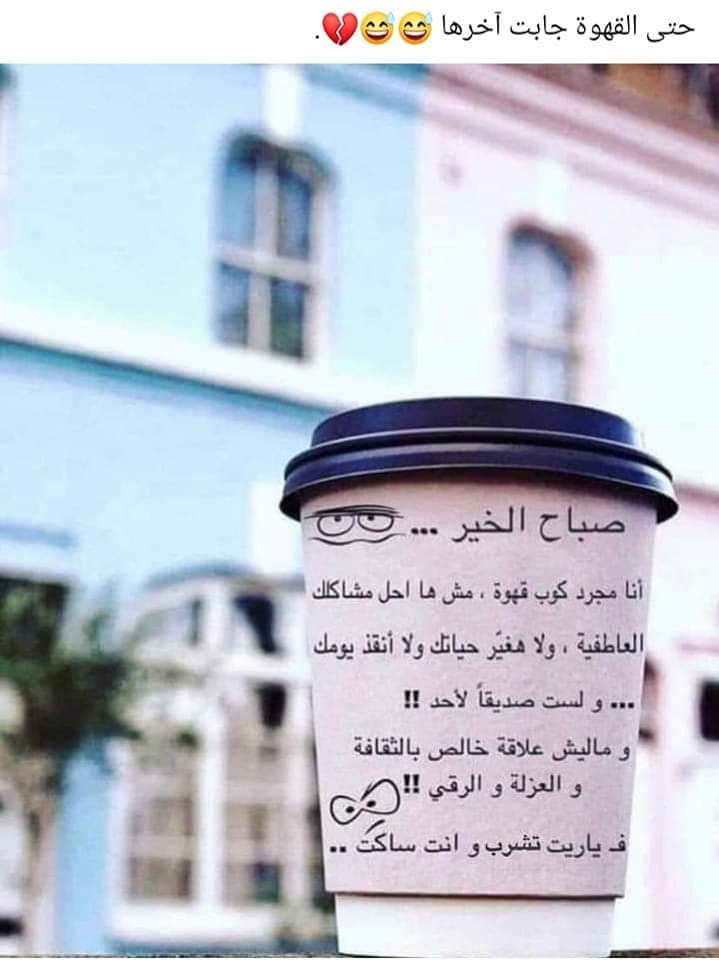 حتى القهوة جابت آخرها 😅😅💔.
صباح الخير ...
أنا مجرد كوب قهوة ، مش ها احل مشاكلك
العاطفية ، ولا هغيّر حياتك ولا أنقذ يومك
... و لست صديقاً لأحد !!
و ماليش علاقة خالص بالثقافة
و العزلة و الرقي !!
فـ ياريت تشرب و انت ساكت ..